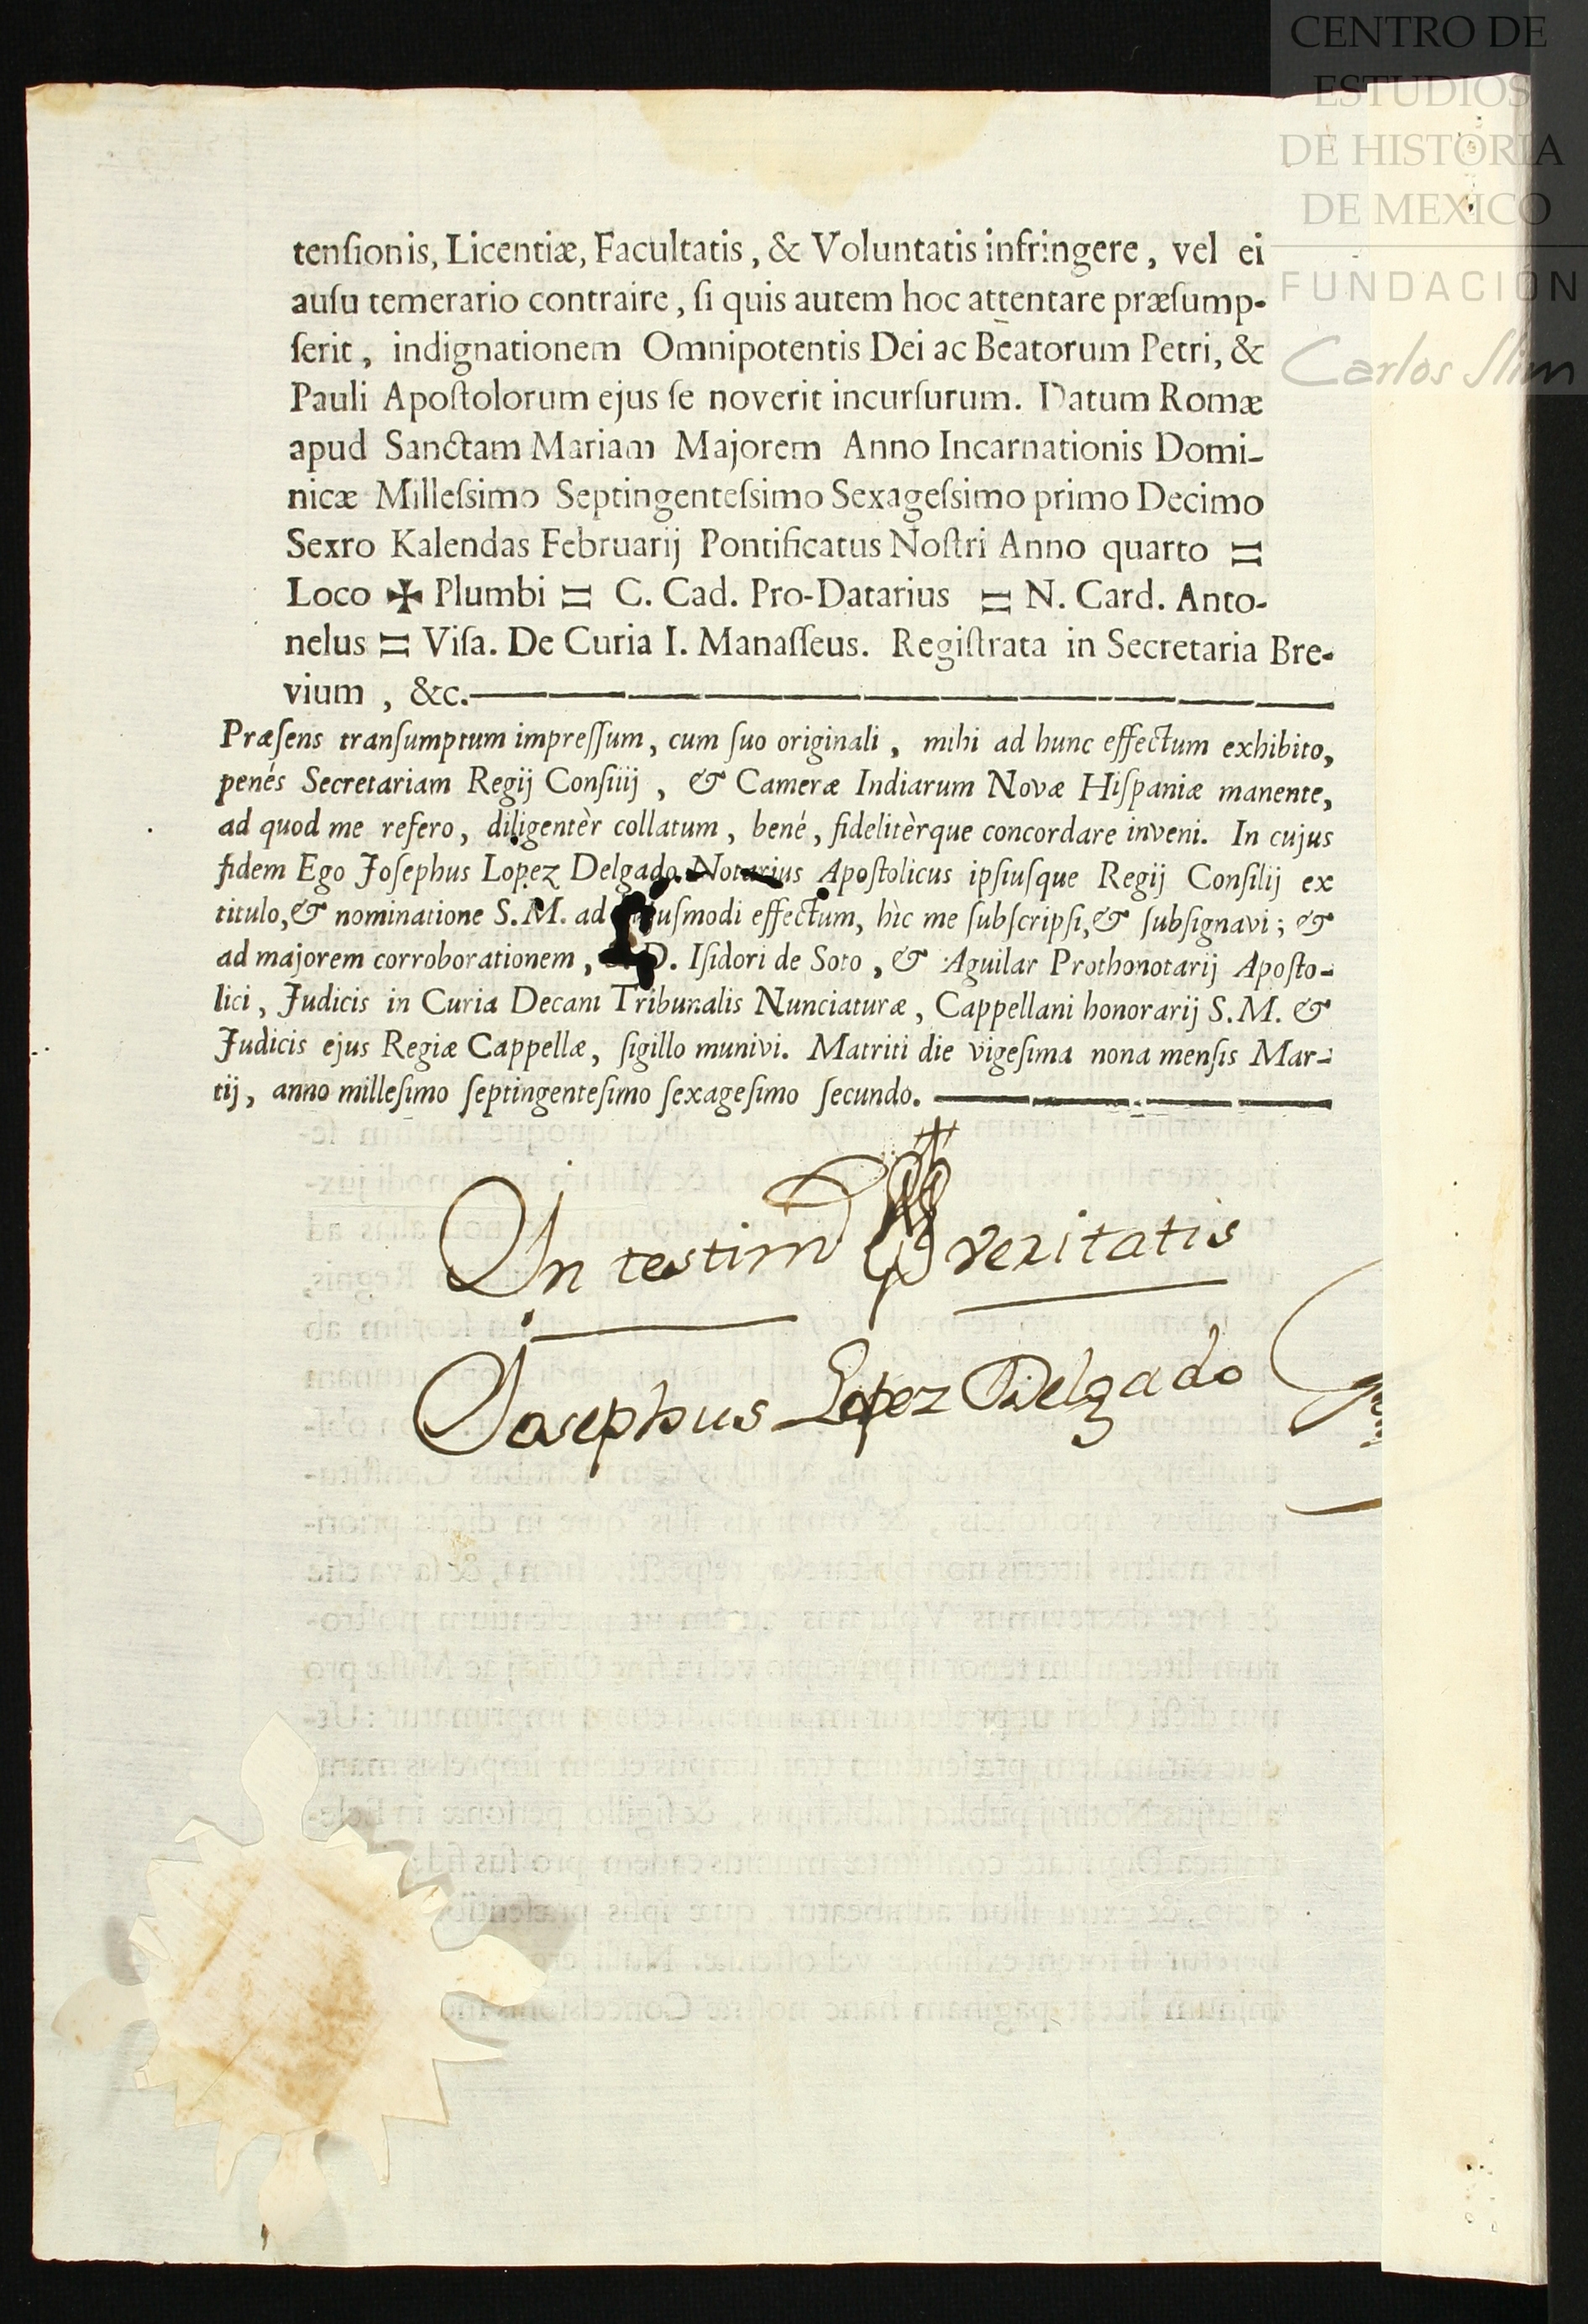 CENTRO DE
ESTUDIOS
DE HISTORIA
DE MEXICO
FUNDACIÓN
Carlos Slim
tenſionis, Licentiæ, Facultatis, & Voluntatis infringere, vel ei
auſu temerario contraire, ſi quis autem hoc attentare præſump-
ſerit, indignationem Omnipotentis Dei ac Beatorum Petri, &
Pauli Apoſtolorum ejus ſe noverit incurſurum. Datum Romæ
apud Sanctam Mariam Majorem Anno Incarnationis Domi-
nicæ Milleſsimo Septingenteſsimo Sexageſsimo primo Decimo
Sexro Kalendas Februarij Pontificatus Noſtri Anno quarto =
Loco ✠ Plumbi = C. Cad. Pro-Datarius = N. Card. Anto-
nelus = Viſa. De Curia I. Manaſſeus. Regiſtrata in Secretaria Bre-
vium, &c.
Præſens tranſumptum impreſſum, cum ſuo originali, mihi ad hunc effectum exhibito,
penés Secretariam Regij Conſiiij, & Cameræ Indiarum Novæ Hiſpaniæ manente,
ad quod me refero, diligentèr collatum, bené, fidelitèrque concordare inveni. In cujus
fidem Ego Joſephus Lopez Delgado Notarius Apoſtolicus ipſiuſque Regij Conſilij ex
titulo, & nominatione S. M. ad uſmodi effectum, hìc me ſubſcripſi, & ſubſignavi; &
ad majorem corroborationem, D. Iſidori de Soto, & Aguilar Prothonotarij Apoſto-
lici, Judicis in Curia Decani Tribunalis Nunciaturæ, Cappellani honorarij S. M. &
Judicis ejus Regiæ Cappellæ, ſigillo munivi. Matriti die vigeſima nona menſis Mar-
tij, anno milleſimo ſeptingenteſimo ſexageſimo ſecundo.
In testim veritatis
Josephus Lopez Delgado